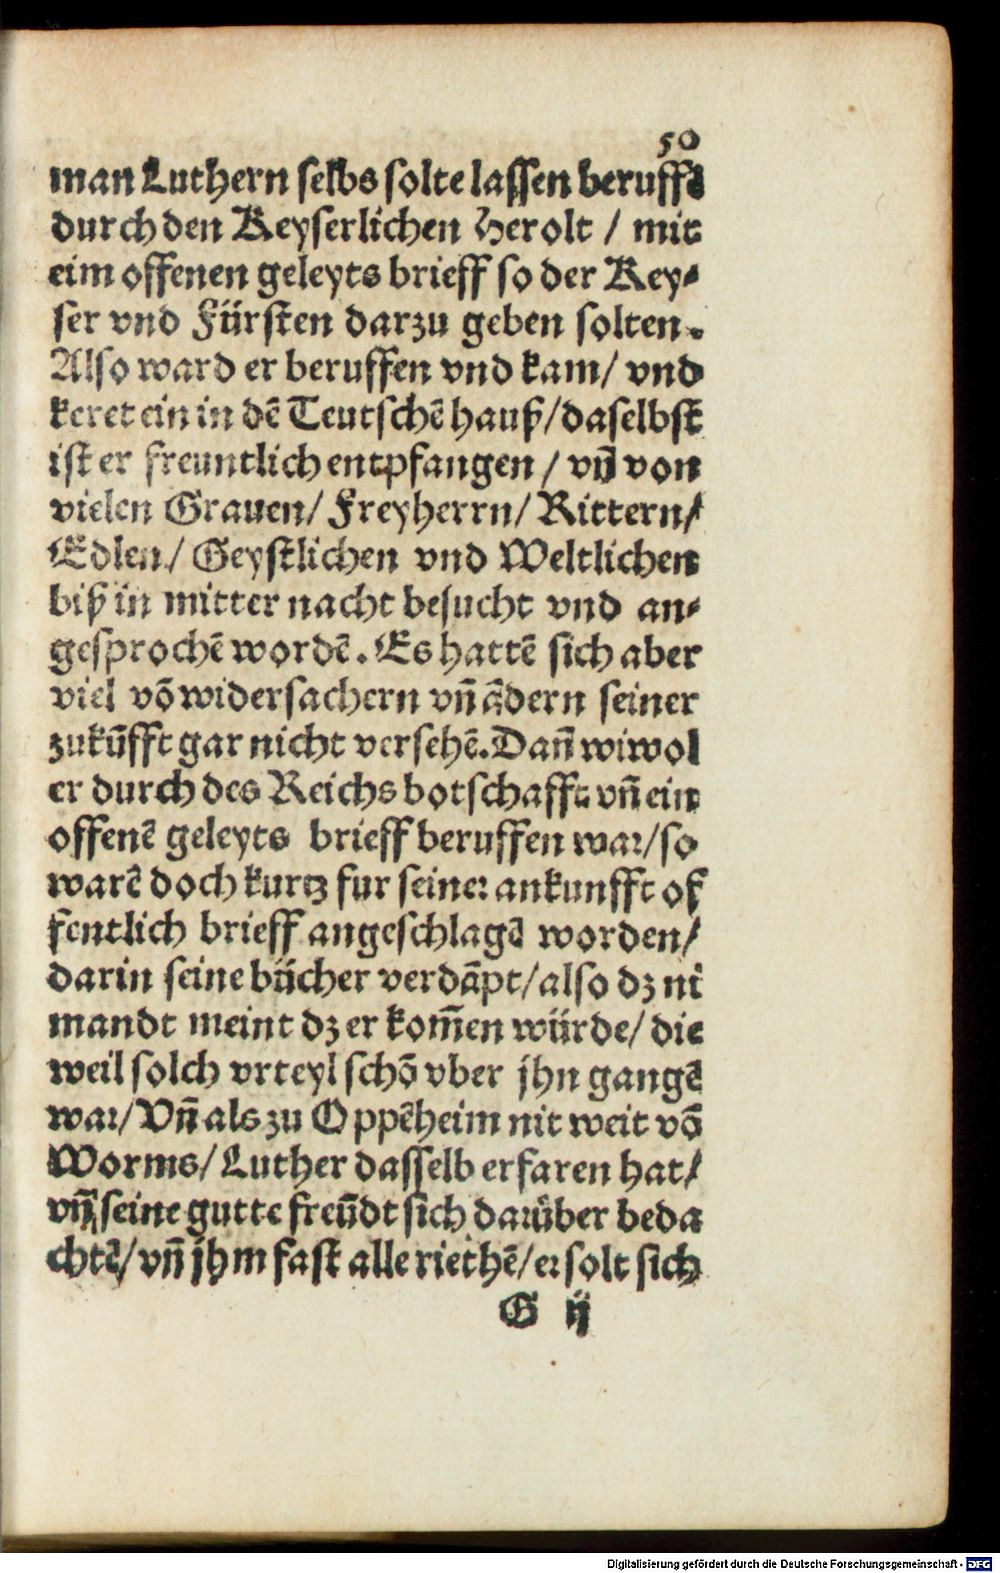 50
man Luthern selbs solte lassen beruffē
durch den Keyserlichen Herolt / mit
eim offenen geleyts brieff so der Key⸗
ser vnd Fürsten darzu geben solten.
Also ward er beruffen vnd kam/ vnd
keret ein in dē Teutschē hauß/daselbst
ist er freuntlich entpfangen / vñ von
vielen Grauen/ Freyherrn/ Rittern/
Edlen/ Geystlichen vnd Weltlichen
biß in mitter nacht besucht vnd an⸗
gesprochē wordē. Es hattē sich aber
viel vō widersachern vñ ādern seiner
zukūfft gar nicht versehē. Dañ wiwol
er durch des Reichs botschafft vñ ein
offenē geleyts brieff beruffen war/so
warē doch kurtz fur seiner ankunfft of
fentlich brieff angeschlagē worden/
darin seine bücher verdāpt/also dz ni
mandt meint dz er kom̄en würde/ die
weil solch vrteyl schō vber jhn gangē
war/ Vñ als zu Oppēheim nit weit vō
Worms/ Luther dasselb erfaren hat/
vñ seine gutte freūdt sich darüber beda
chtē/ vñ jhm fast alle riethē/ er solt sich
G ij
Digitalisierung gefördert durch die Deutsche Forschungsgemeinschaft - DFG